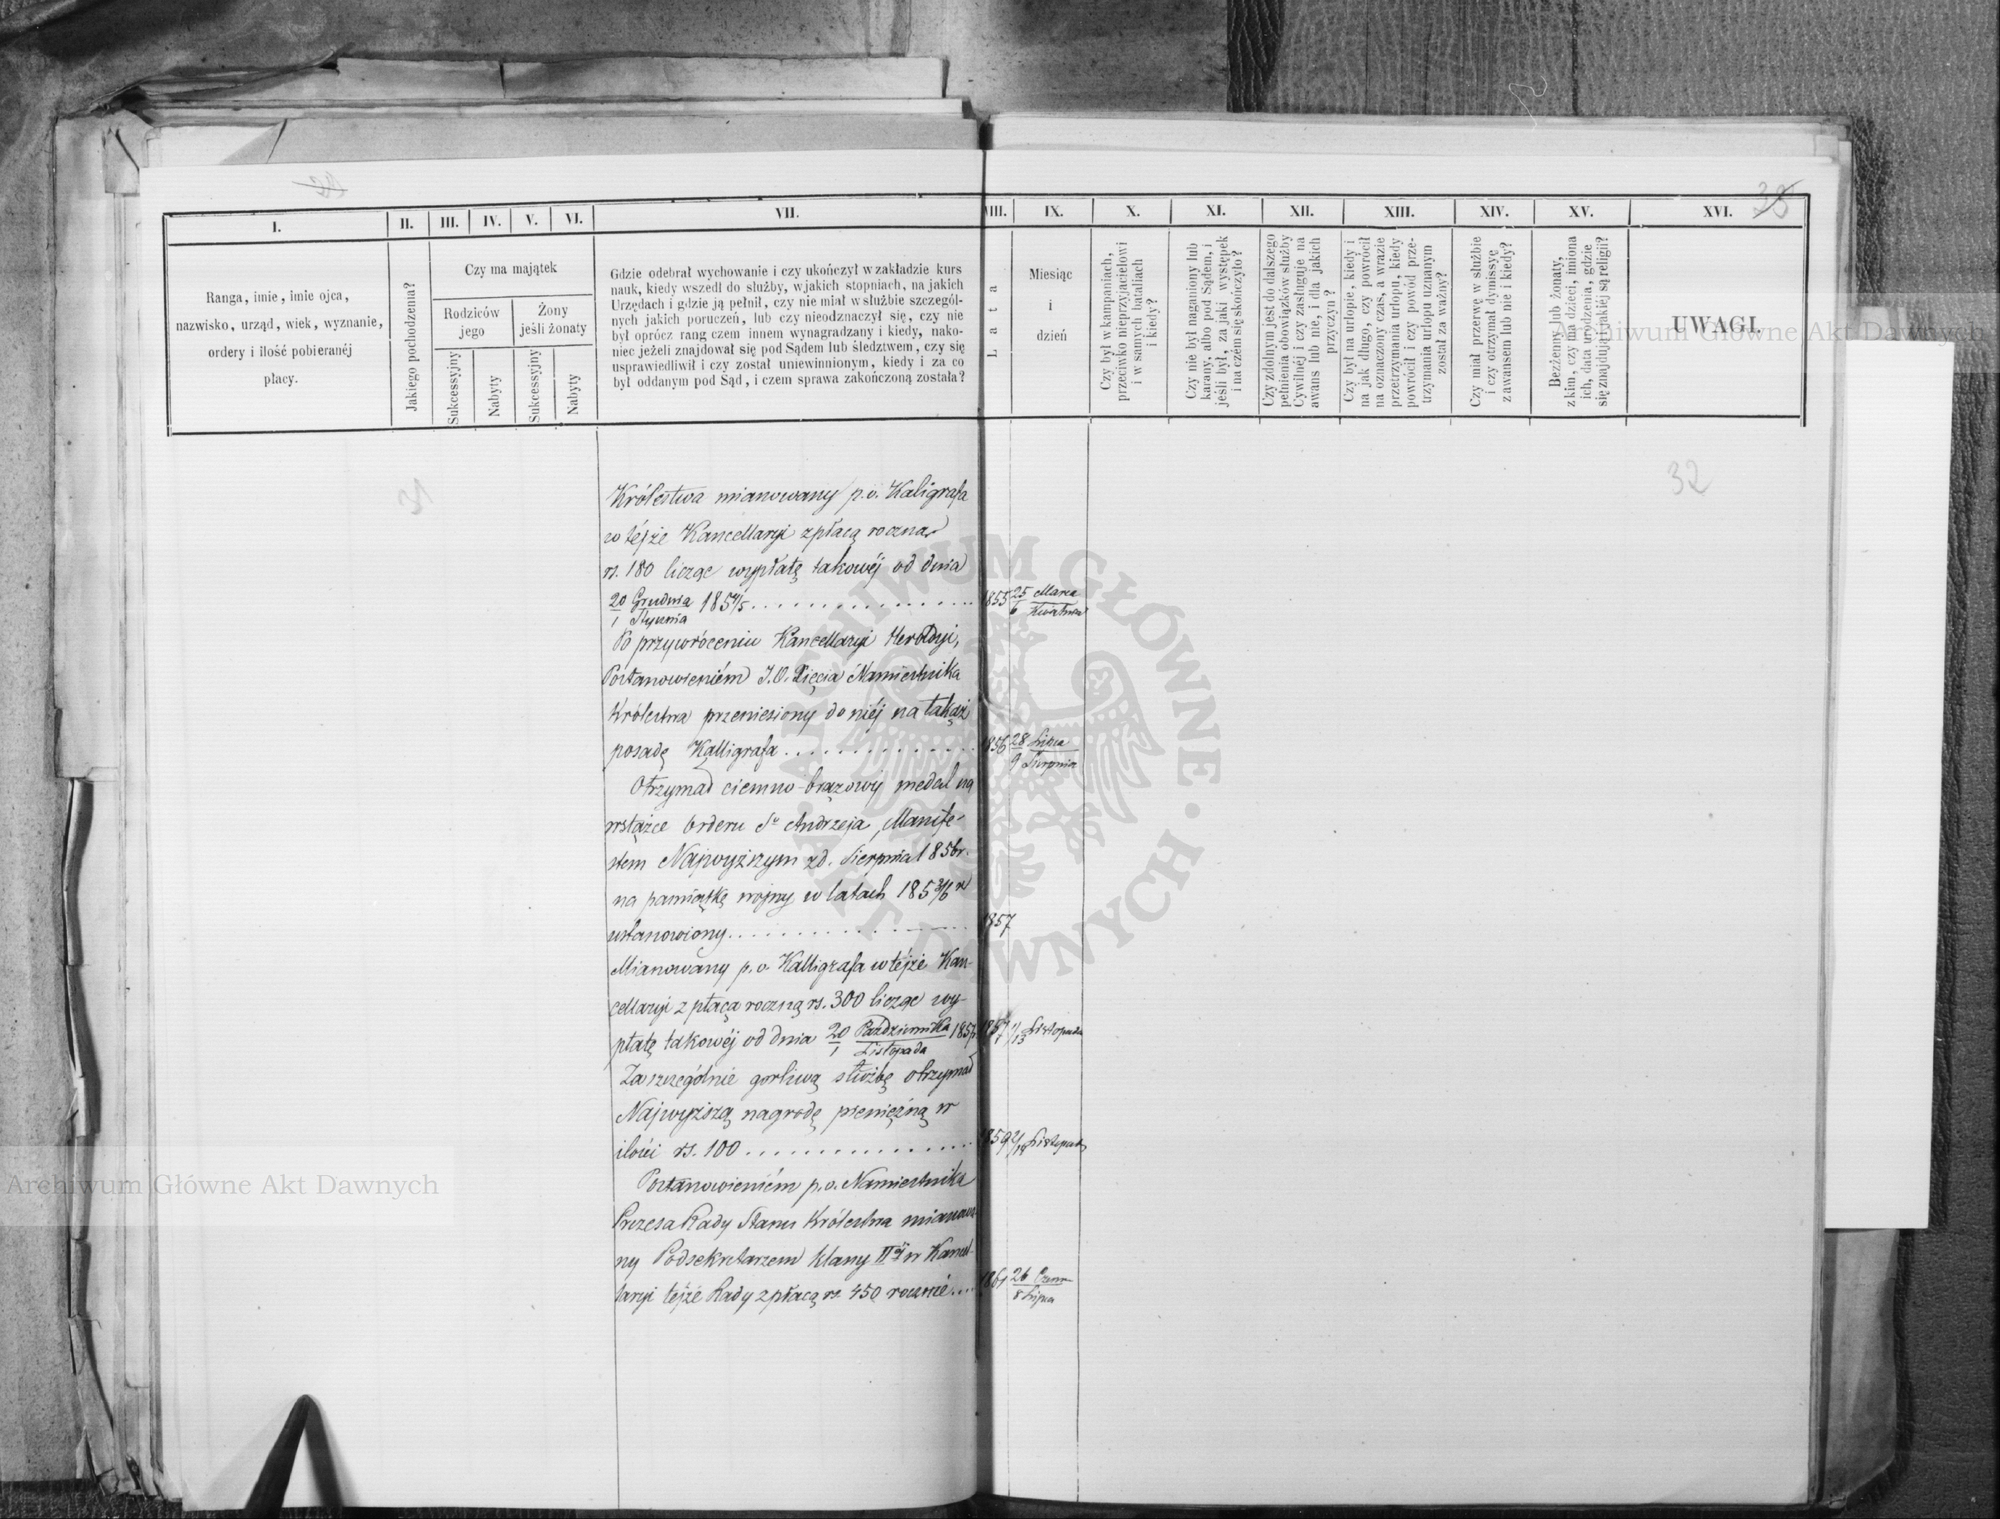 33
I.
II.
III.
IV.
V.
VI.
VII.
VIII.
IX.
X.
XI.
XII.
XIII.
XIV.
XV.
XVI.
Ranga, imie, imie ojca,
nazwisko, urząd, wiek, wyznanie,
ordery i ilość pobieranéj
płacy.
Jakiego pochodzenia?
Czy ma majątek
Rodziców
jego
Żony
jeśli żonaty
Sukcessyjny
Nabyty
Sukcessyjny
Nabyty
Gdzie odebrał wychowanie i czy ukończył w zakładzie kurs
nauk, kiedy wszedł do służby, w jakich stopniach, na jakich
Urzędach i gdzie ją pełnił, czy nie miał w służbie szczegól-
nych jakich poruczeń, lub czy nieodznaczył się, czy nie
był oprócz rang czem innem wynagradzany i kiedy, nako-
niec jeżeli znajdował się pod Sądem lub śledztwem, czy się
usprawiedliwił i czy został uniewinnionym, kiedy i za co
był oddanym pod Sąd, i czem sprawa zakończoną została?
Lata
Miesiąc
i
dzień
Czy był w kampaniach,
przeciwko nieprzyjacielowi
i w samych bataliach
i kiedy?
Czy nie był naganiony lub
karany, albo pod Sądem, i
jeśli był, za jaki występek
i na czém się skończyło?
Czy zdolnym jest do dalszego
pełnienia obowiązków służby
Cywilnéj i czy zasługuje na
awans lub nie, i dla jakich
przyczyn?
Czy był na urlopie, kiedy i
na jak długo, czy powrócił
na oznaczony czas, a wrazie
przetrzymania urlopu, kiedy
powrócił i czy powód prze-
trzymania urlopu uznanym
został za ważny?
Czy miał przerwę w służbie
i czy otrzymał dymissyę
z awansem lub nie i kiedy?
Bezżenny lub żonaty,
z kim, czy ma dzieci, imiona
ich, data urodzenia, gdzie
się znajdują i jakiéj są religii?
UWAGI.
32
Królestwa mianowany p.o. Kaligrafa
w téjże Kancellaryi z płacą roczną
rs. 180 licząc wypłatę takowéj od dnia
20 Grudnia
1 Stycznia 1854/5 . . . . . . . . 1855 25 Marca
6 Kwietnia
Po przywróceniu Kancellaryi Heroldyi,
Postanowieniém J.O. Xięcia Namiestnika
Królestwa przeniesiony do niéj na takąż
posadę Kalligrafa . . . . . . . . 1856 28 Lipca
9 Sierpnia
Otrzymał ciemno-brązowy medal na
wstążce Orderu Sgo Andrzeja, Manife-
stem Najwyższym z d. Sierpnia 1856 r.
na pamiątkę wojny w latach 1853/6 r.
ustanowiony . . . . . . . . 1857
Mianowany p.o. Kalligrafa w téjże Kan-
cellaryi z płacą roczną rs. 300 licząc wy-
płatę takowéj od dnia 20 Października
1 Listopada 1857 1857 1/13 Listopada
Za szczególnie gorliwą służbę otrzymał
Najwyższą nagrodę pieniężną w
ilości rs. 100 . . . . . . . . 1859 2/14 Listopada
Postanowieniém p.o. Namiestnika
Prezesa Rady Stanu Królestwa mianowa-
ny Podsekretarzem klassy IIéj w Kancel-
laryi téjże Rady z płacą rs. 450 rocznie . . . 1861 26 Czerw
8 Lipca
Archiwum Główne Akt Dawnych
Archiwum Główne Akt Dawnych
ARCHIWUM GŁÓWNE · AKT DAWNYCH ·